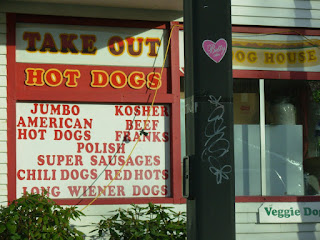 TAKE OUT
HOT DOGS
JUMBO KOSHER
AMERICAN BEEF
HOT DOGS FRANKS
POLISH
SUPER SAUSAGES
CHILI DOGS RED HOTS
LONG WIENER DOGS
OG HOUSE
Veggie Do